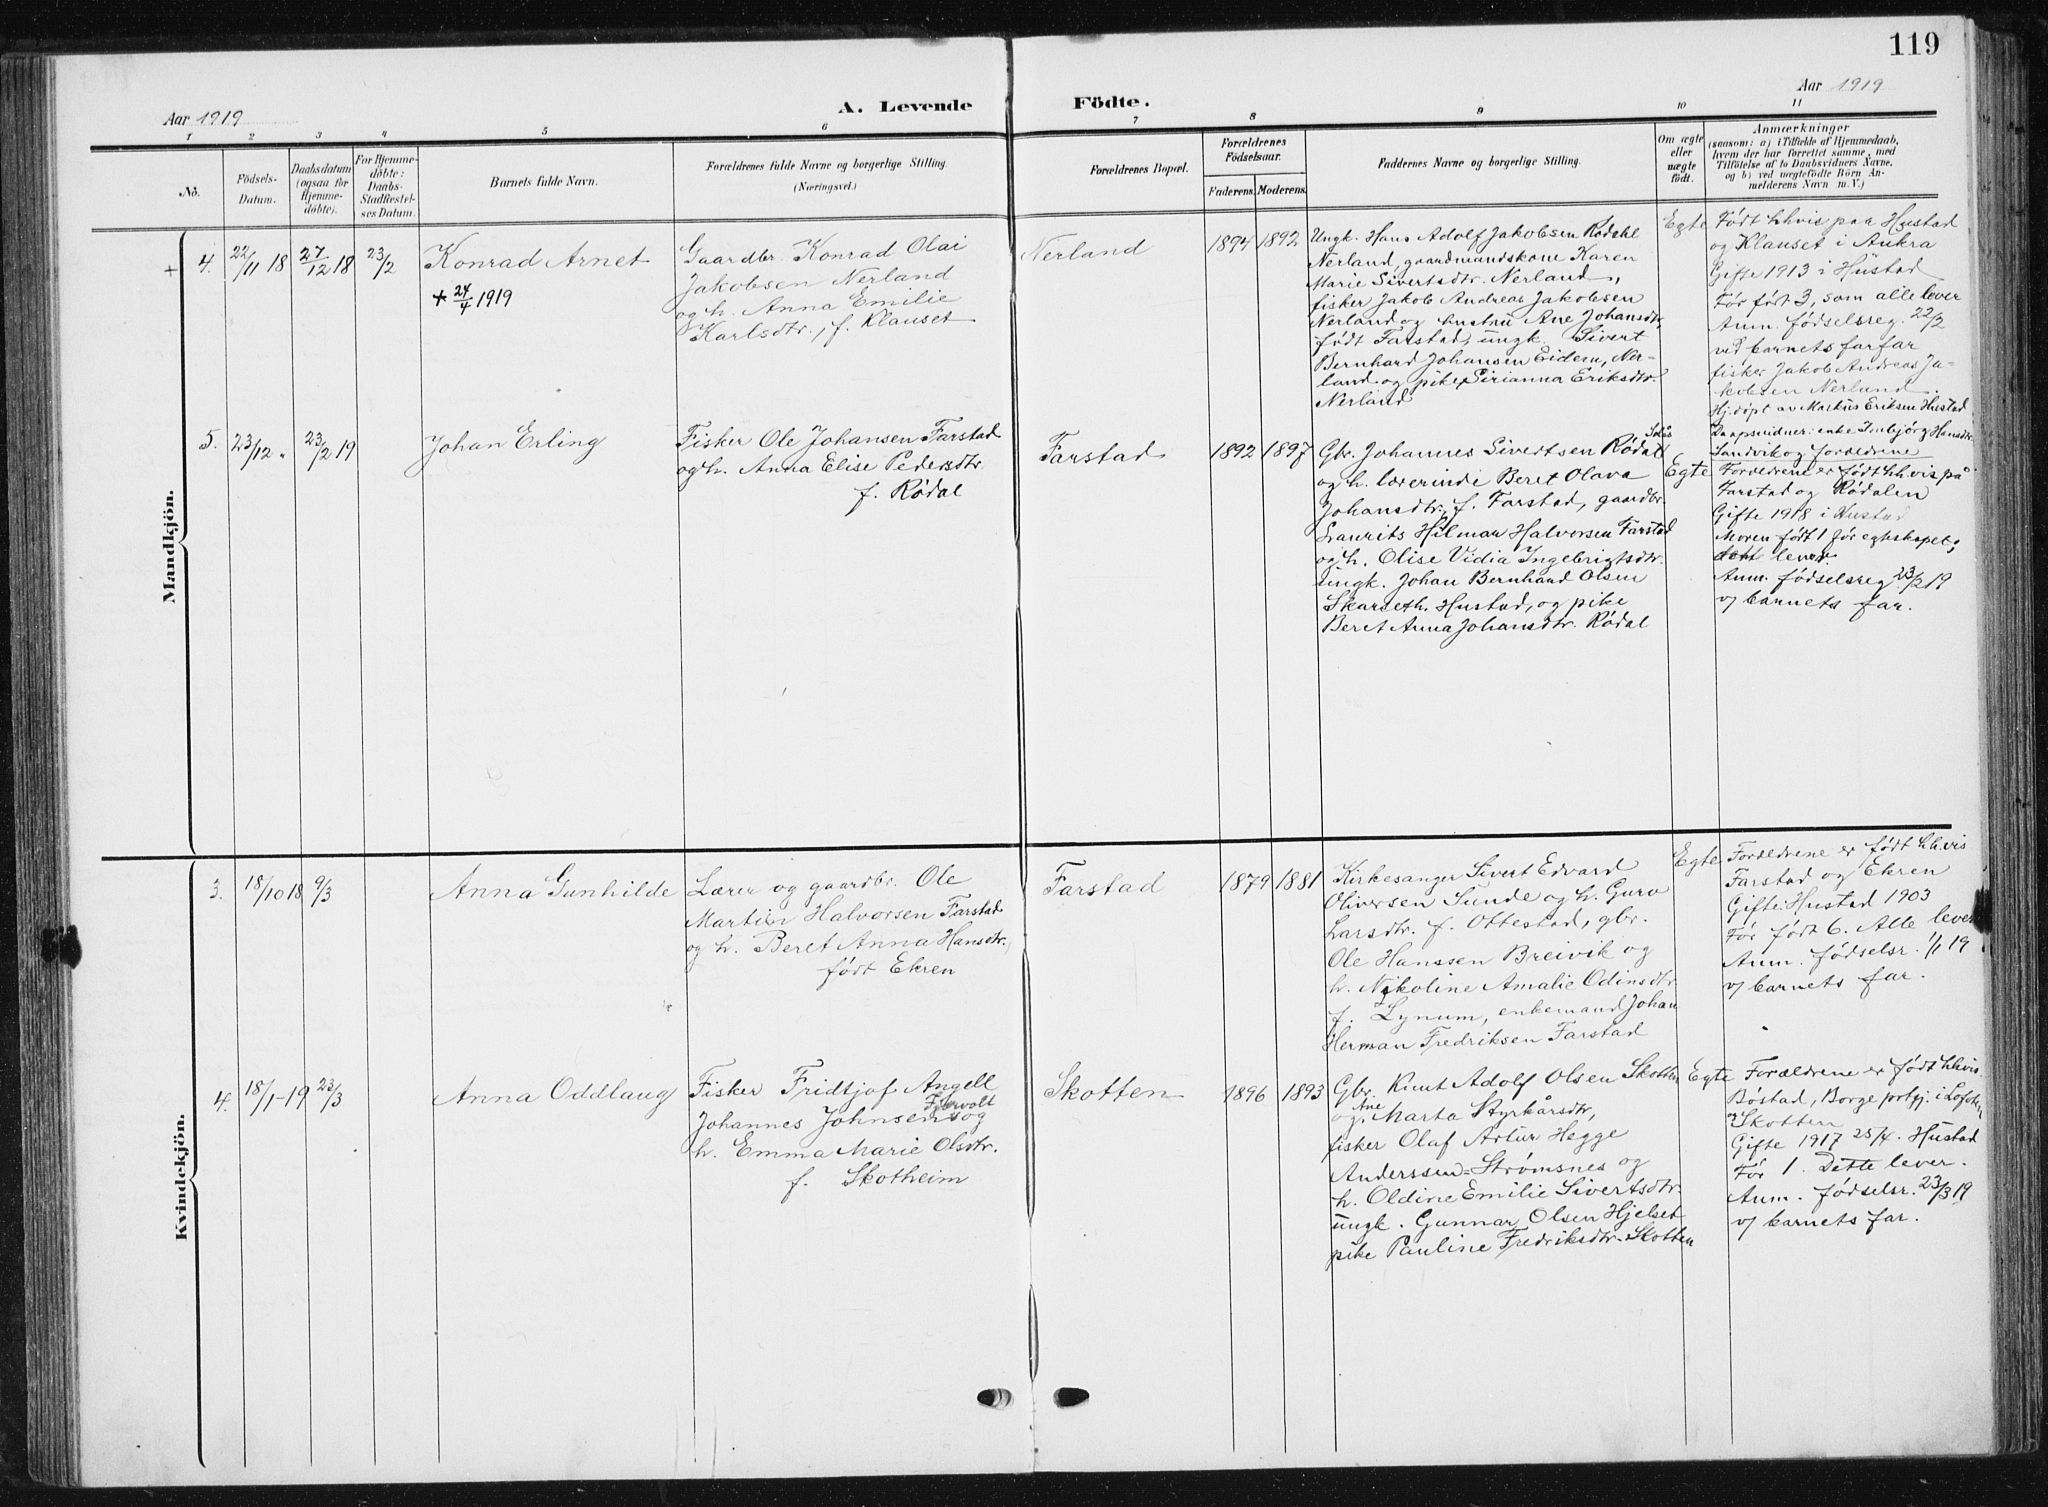 119
Aar 1919
A. Levende Födte.
Aar 1919
1 2 3 4 5 6 7 8 9 10 11
No.
Födsels-
Datum.
Daabsdatum
(ogsaa for
Hjemme-
döbte).
For Hjemme-
döbte:
Daabs-
Stadfæstel-
ses Datum.
Barnets fulde Navn.
Forældrenes fulde Navne og borgerlige Stilling.
(Næringsvei.)
Forældrenes Bopæl.
Forældrenes
Födselsaar.
Faderens. Moderens.
Faddernes Navne og borgerlige Stilling.
Om ægte
eller
uægte
født.
Anmærkninger
(saasom: a) i Tilfælde af Hjemmedaab,
hvem der har forrettet samme, med
Tilföielse af to Daabsvidners Navne,
og b) ved uægtefödte Börn An-
melderens Navn m. V.)
Mandkjön.
+ 4. 22/11 18 27/12 18 23/2
Konrad Arnet
+ 24/4 1919
Gaardbr. Konrad Olai
Jakobsen Nerland
og h. Anna Emilie
Karlsdtr., f. Klauset
Nerland
1894 1892
Ungk. Hans Adolf Jakobsen Rødahl
Nerland, gaardmandskone Karen
Marie Sivertsdtr. Nerland,
fisker Jakob Andreas Jakobsen
Nerland og hustru Ane Johansdtr,
født Farstad, ungk. Sivert
Bernhard Johansen Eidem, Ner-
land og pike Sirianna Eriksdtr.
Nerland
Egte
Født hhvis paa Hustad
og Klauset i Aukra
Gifte 1913 i Hustad
Før født 3, som alle lever
Anm. fødselsreg. 22/2
ved barnets farfar
fisker Jakob Andreas Ja-
kobsen Nerland.
Hj.døpt av Markus Eriksen Hustad
Daapsvidner: enke Inbjørg Hansdtr.
Sandvik og forældrene
5. 23/12 " 23/2 19
Johan Erling
Fisker Ole Johansen Farstad
og h. Anna Elise Pedersdtr.
f. Rødal
Farstad
1892 1897
Gbr. Johannes Sivertsen Rødal
og h. lærerinde Beret Olava
Johansdtr., f. Farstad, gaardbr.
Laurits Hilmar Halvorsen Farstad
og h. Olise Vidia Ingebrigtsdtr.
ungk. Johan Bernhard Olsen
Skarseth. Hustad, og pike
Beret Anna Johansdtr. Rødal
Egte
Forældrene er født hhvis på
Farstad og Rødalen
Gifte 1918 i Hustad
Moren født 1 før egteskapet;
lever.
Anm. fødselsreg 23/2 19
v/ barnets far.
Kvindekjön.
3. 18/10 18 9/3
Anna Gunhilde
Lærer og gaardbr. Ole
Martin Halvorsen Farstad
og h. Beret Anna Hansdtr.
født Ekren
Farstad
1879 1881
Kirkesanger Sivert Edvard
Oliversen Sunde og h. Guro
Larsdtr. f. Ottestad, gbr.
Ole Hanssen Breivik og
h. Nikoline Amalie Odinsdtr.
f. Lynum, enkemand Johan
Herman Fredriksen Farstad
Egte
Forældrene er født hhvis
Farstad og Ekren
Gifte: Hustad 1903
Før født 6. Alle lever
Anm. fødselsr. 1/1 19
v/ barnets far.
4. 18/1-19 23/3
Anna Oddlaug
Fisker Fridtjof Angell
Johannes Johnsen og
h. Emma Marie Olsdtr.
f. Skotheim
Skotten
1896 1893
Gbr. Knut Adolf Olsen Skotten
og Ane Marta Styrkårsdtr,
fisker Olaf Artur Hegge
Anderssen=Strømsnes og
h. Oldine Emilie Sivertsdtr.
ungk. Gunnar Olsen Hjelset
pike Pauline Fredriksdtr. Skotten
Egte
Forældrene er født hhvis
Bøstad, Borge prstgj. i Lofoten
og Skotten
Gifte 1917 25/4. Hustad
Før 1. Dette lever.
Anm. fødselsr. 23/3 19
v/ barnets far.